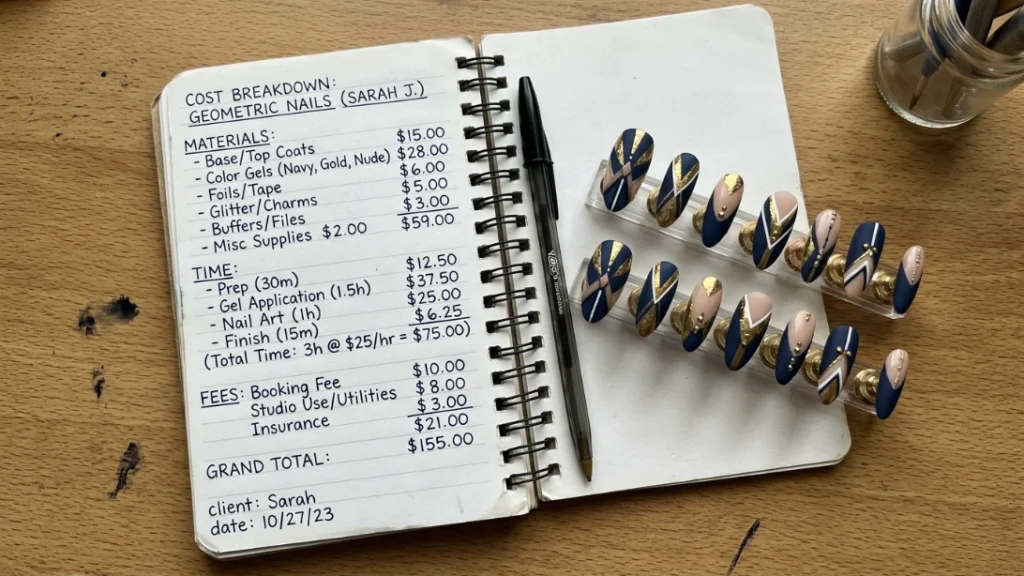 COST BREAKDOWN:
GEOMETRIC NAILS (SARAH J.)
MATERIALS:
- Base/Top Coats $15.00
- Color Gels (Navy, Gold, Nude) $28.00
- Foils/Tape $6.00
- Glitter/Charms $5.00
- Buffers/Files $3.00
- Misc Supplies $2.00 $59.00
TIME:
- Prep (30m) $12.50
- Gel Application (1.5h) $37.50
- Nail Art (1h) $25.00
- Finish (15m) $6.25
(Total Time: 3h @ $25/hr = $75.00)
FEES: Booking Fee $10.00
Studio Use/Utilities $8.00
Insurance $3.00
$21.00
GRAND TOTAL: $155.00
client: Sarah
date: 10/27/23